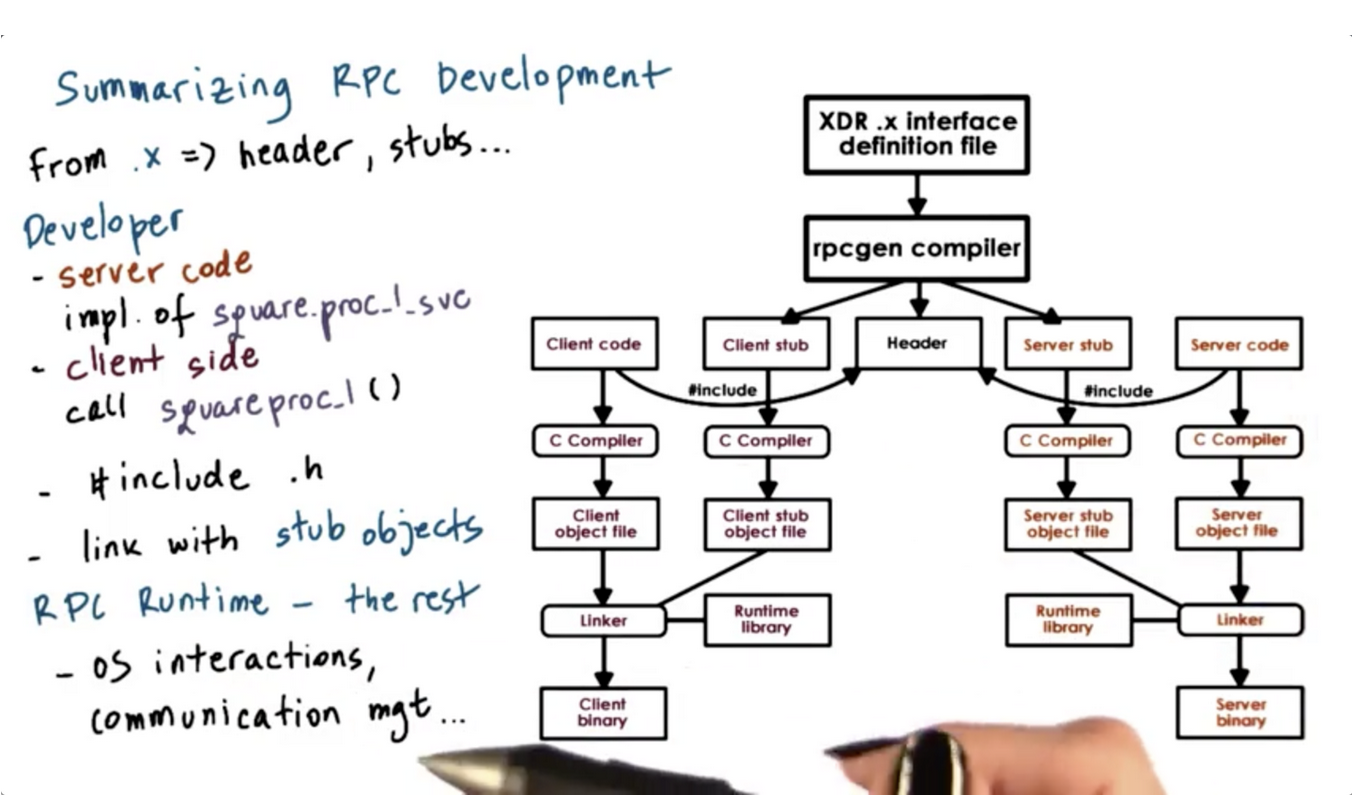 Summarizing RPC Development
from .x => header, stubs...
Developer
- server code
impl. of square.proc_1_svc
- client side
call squareproc_1()
- #include .h
- link with stub objects
RPC Runtime - the rest
- OS interactions,
communication mgt...
XDR .x interface
definition file
rpcgen compiler
Client code
Client stub
Header
Server stub
Server code
#include
#include
C Compiler
C Compiler
C Compiler
C Compiler
Client
object file
Client stub
object file
Server stub
object file
Server
object file
Linker
Runtime
library
Runtime
library
Linker
Client
binary
Server
binary